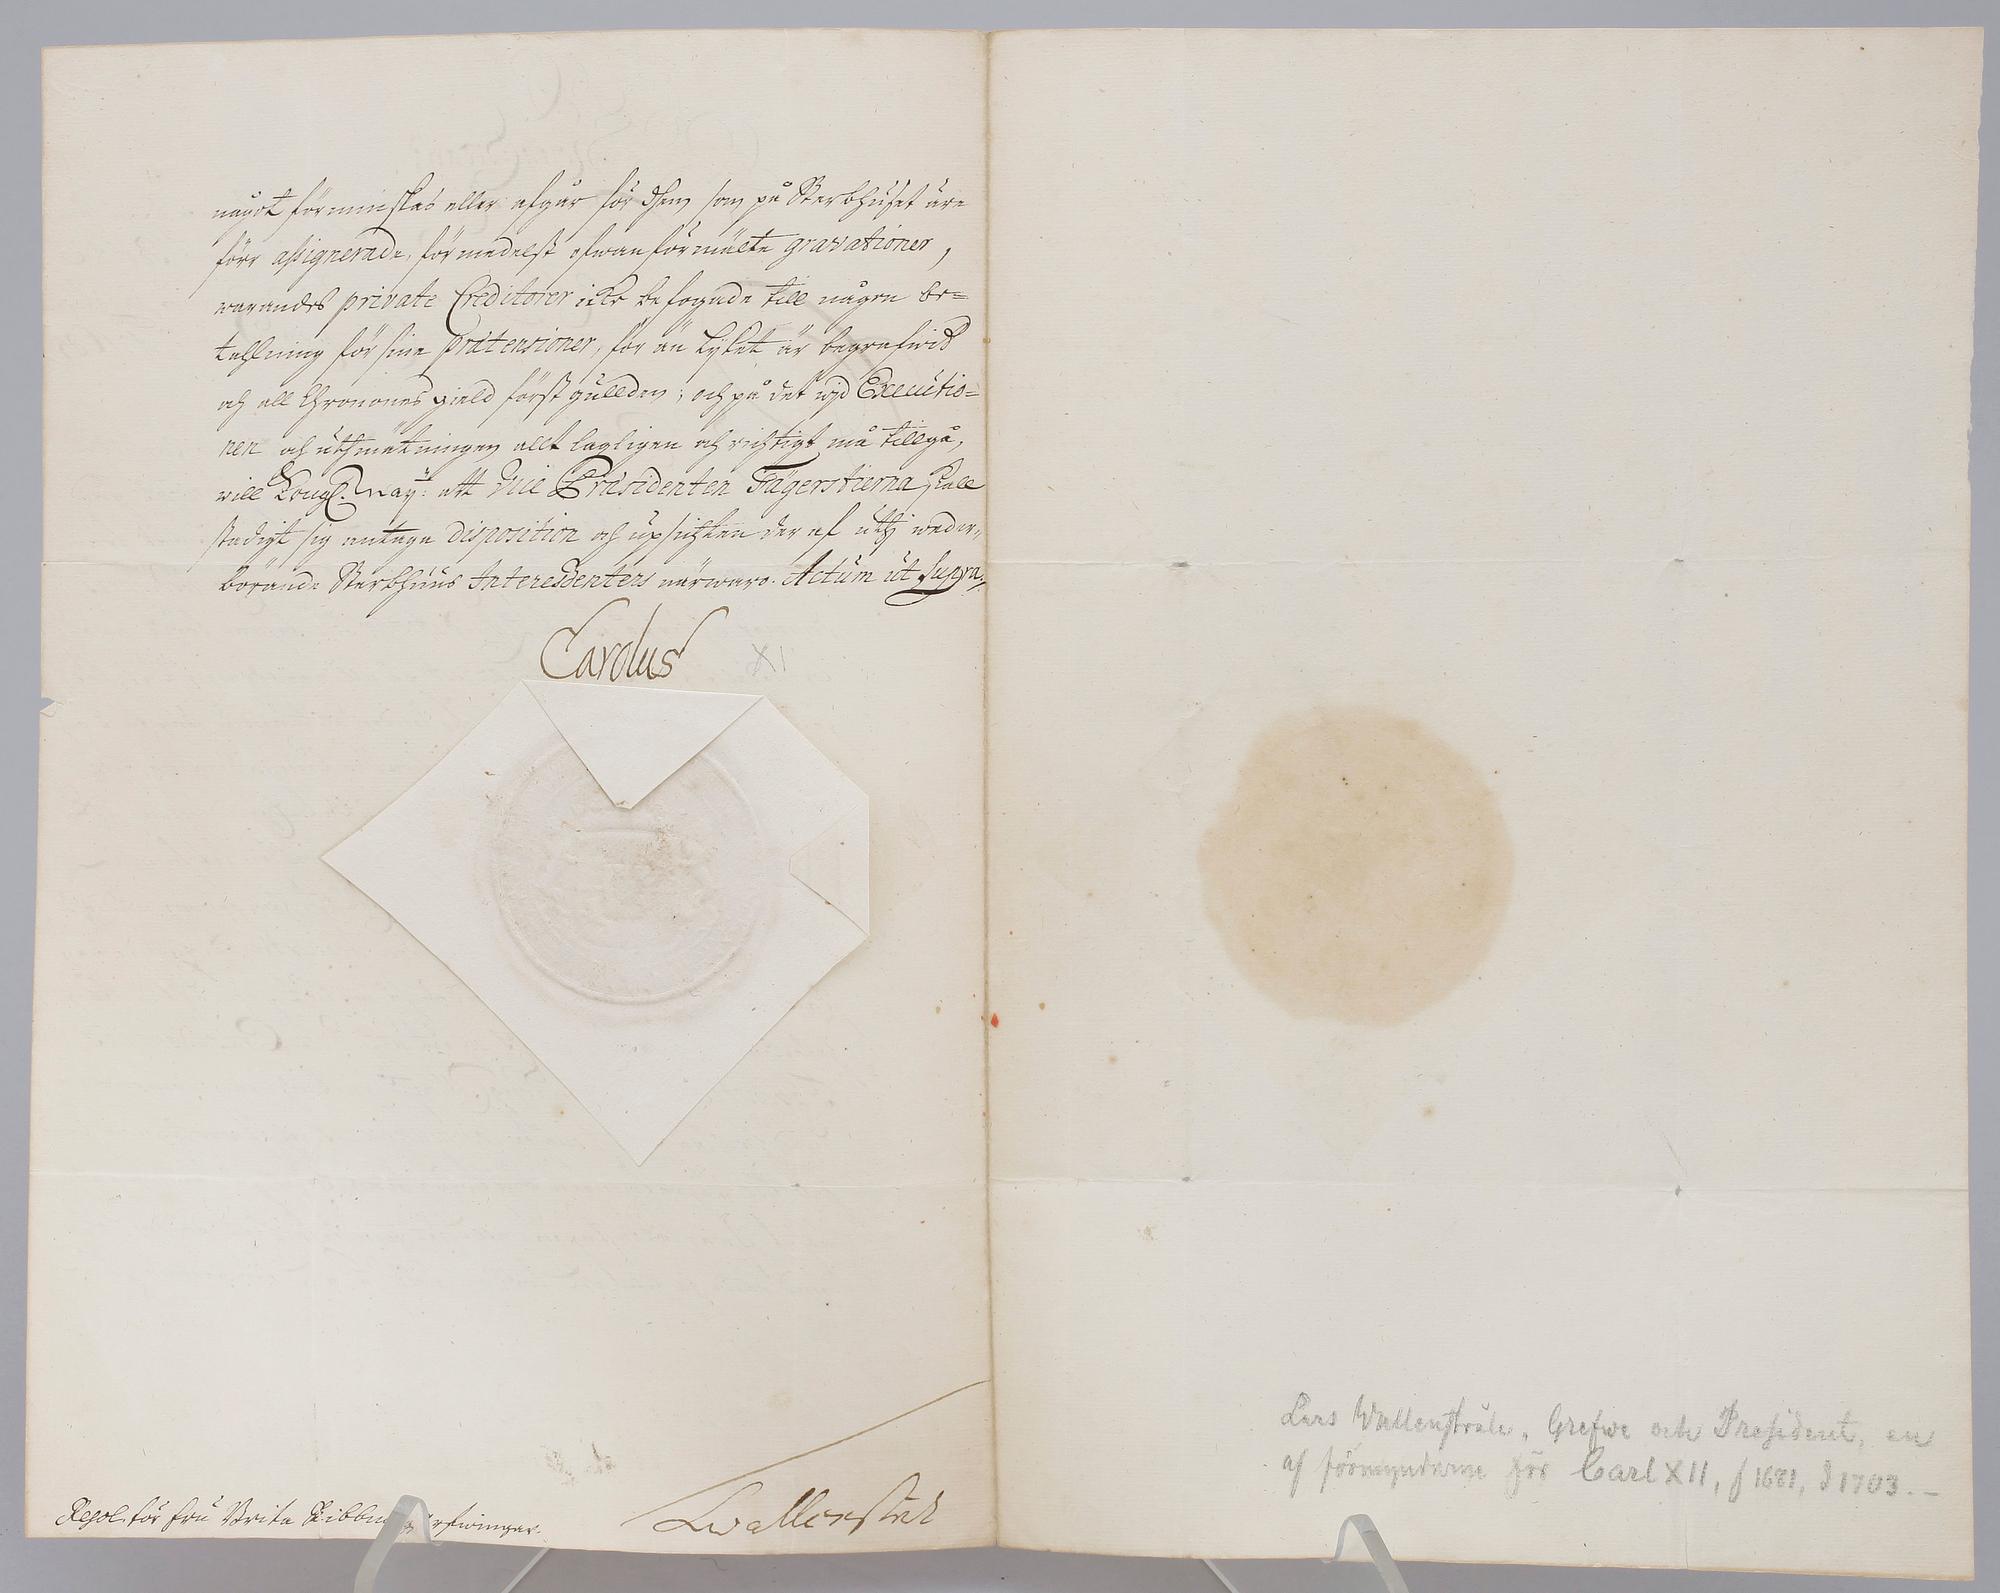 något förminskas eller afgår för dhem som på Sterbhuset äre
förr assignerade, förmedelst ofwanförmälte gravationer,
warandes private Creditorer icke befogade till någon be=
tahlning för sine prætensioner, för än lyket är begrafwit
och all Chronones gield först gullden; och på det wijd Executio=
nen och uthmätningen allt lagligen och richtigt må tillgå,
will Kongl. May:t att Vice Præsidenten Fägerstierna skall
stadigt sig antaga disposition och upsichten der af uthj weder-
börande Sterbhuus Interessenters närwaro. Actum ut supra.
Carolus XI
Resol. för fru Brita Ribbing arfwingar.
LWallenstedt
Lars Wallenstråle, Grefwe och President, en
af förmyndarne för Carl XII, f 1631, d 1703.–